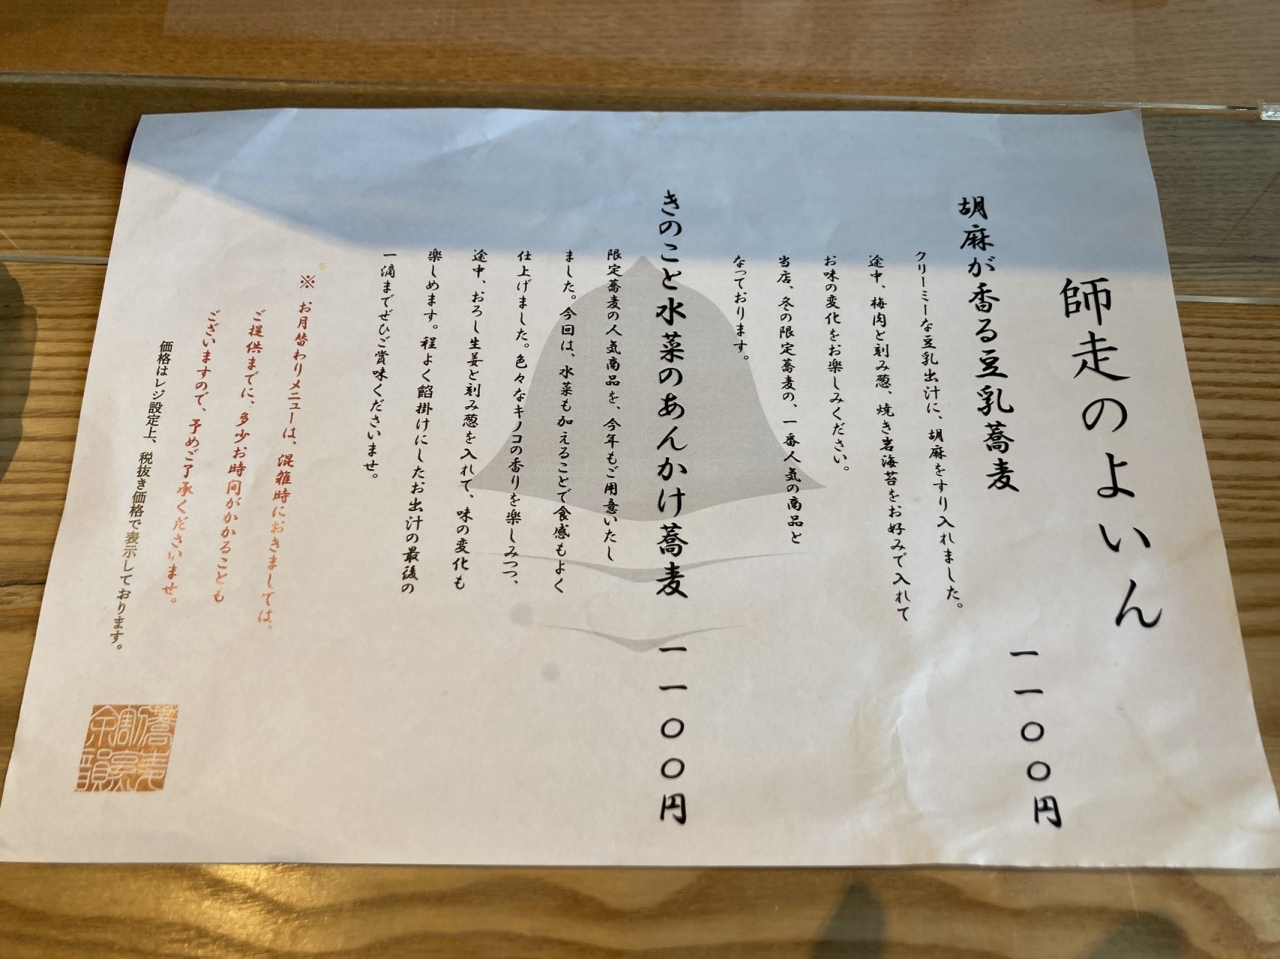 師走のよいん
胡麻が香る豆乳蕎麦
一一〇〇円
クリーミーな豆乳出汁に、胡麻をすり入れました。
途中、梅肉と刻み葱、焼き岩海苔をお好みで入れて
お味の変化をお楽しみください。
当店、冬の限定蕎麦の、一番人気の商品と
なっております。
きのこと水菜のあんかけ蕎麦
一一〇〇円
限定蕎麦の人気商品を、今年もご用意いたし
ました。今回は、水菜も加えることで食感もよく
仕上げました。色々なキノコの香りを楽しみつつ、
途中、おろし生姜と刻み葱を入れて、味の変化も
楽しめます。程よく餡掛けにしたお出汁の最後の
一滴までぜひご賞味くださいませ。
※ お月替わりメニューは、混雑時におきましては、
ご提供までに、多少お時間がかかることも
ございますので、予めご了承くださいませ。
価格はレジ設定上、税抜き価格で表示しております。
蕎麦
割烹
余韻